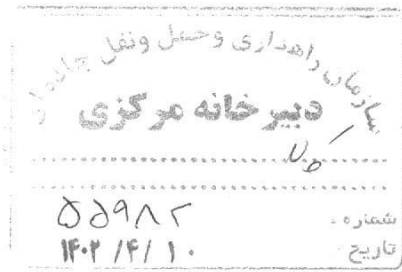 سازمان راهداری وحمل ونقل جاده ای
دبیرخانه مرکزی
شماره - ۵۵۹۸۲
تاریخ ۱۴۰۲ /۴/ ۱۰